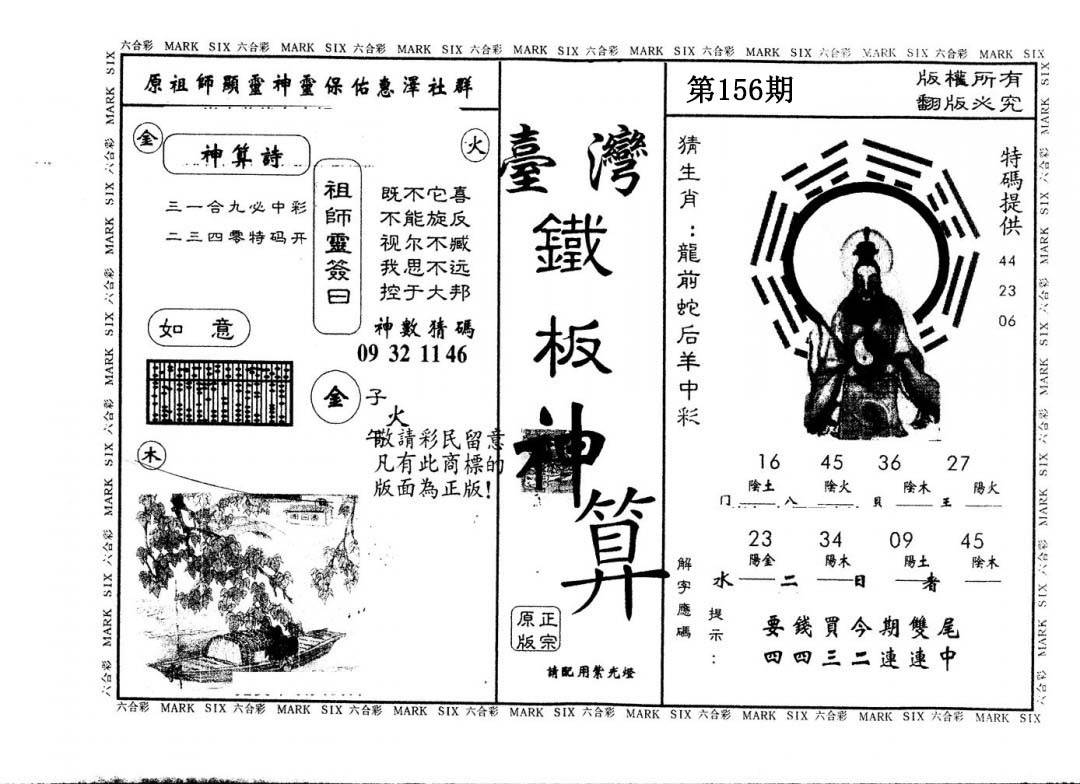 六合彩 MARK SIX 六合彩 MARK SIX 六合彩 MARK SIX 六合彩 MARK SIX 六合彩 MARK SIX 六合彩 MARK SIX 六合彩 MARK SIX 六合彩 MARK SIX
原祖師顯靈神靈保佑惠澤社群
金
神算詩
火
三一合九必中彩
二三四零特码开
祖師靈簽曰
既不它喜
不能旋反
视尔不臧
我思不远
控于大邦
如 意
神數猜碼
09 32 11 46
金
子
火
午
敬請彩民留意
凡有此商標的
版面為正版!
木
臺灣
鐵
板
神
算
正宗
原版
請配用紫光燈
第156期
版權所有
翻版必究
猜生肖:龍前蛇后羊中彩
特碼提供
44
23
06
16 45 36 27
陰土 陰火 陰木 陽火
门 八 貝 王
23 34 09 45
陽金 陽木 陽土 陰木
水 二 日 者
解字應碼
提示:
要錢買今期雙尾
四四三二連連中
六合彩 MARK SIX 六合彩 MARK SIX 六合彩 MARK SIX 六合彩 MARK SIX 六合彩 MARK SIX 六合彩 MARK SIX 六合彩 MARK SIX 六合彩 MARK SIX
六合彩 MARK SIX 六合彩 MARK SIX 六合彩 MARK SIX 六合彩 MARK SIX 六合彩 MARK SIX
六合彩 MARK SIX 六合彩 MARK SIX 六合彩 MARK SIX 六合彩 MARK SIX 六合彩 MARK SIX